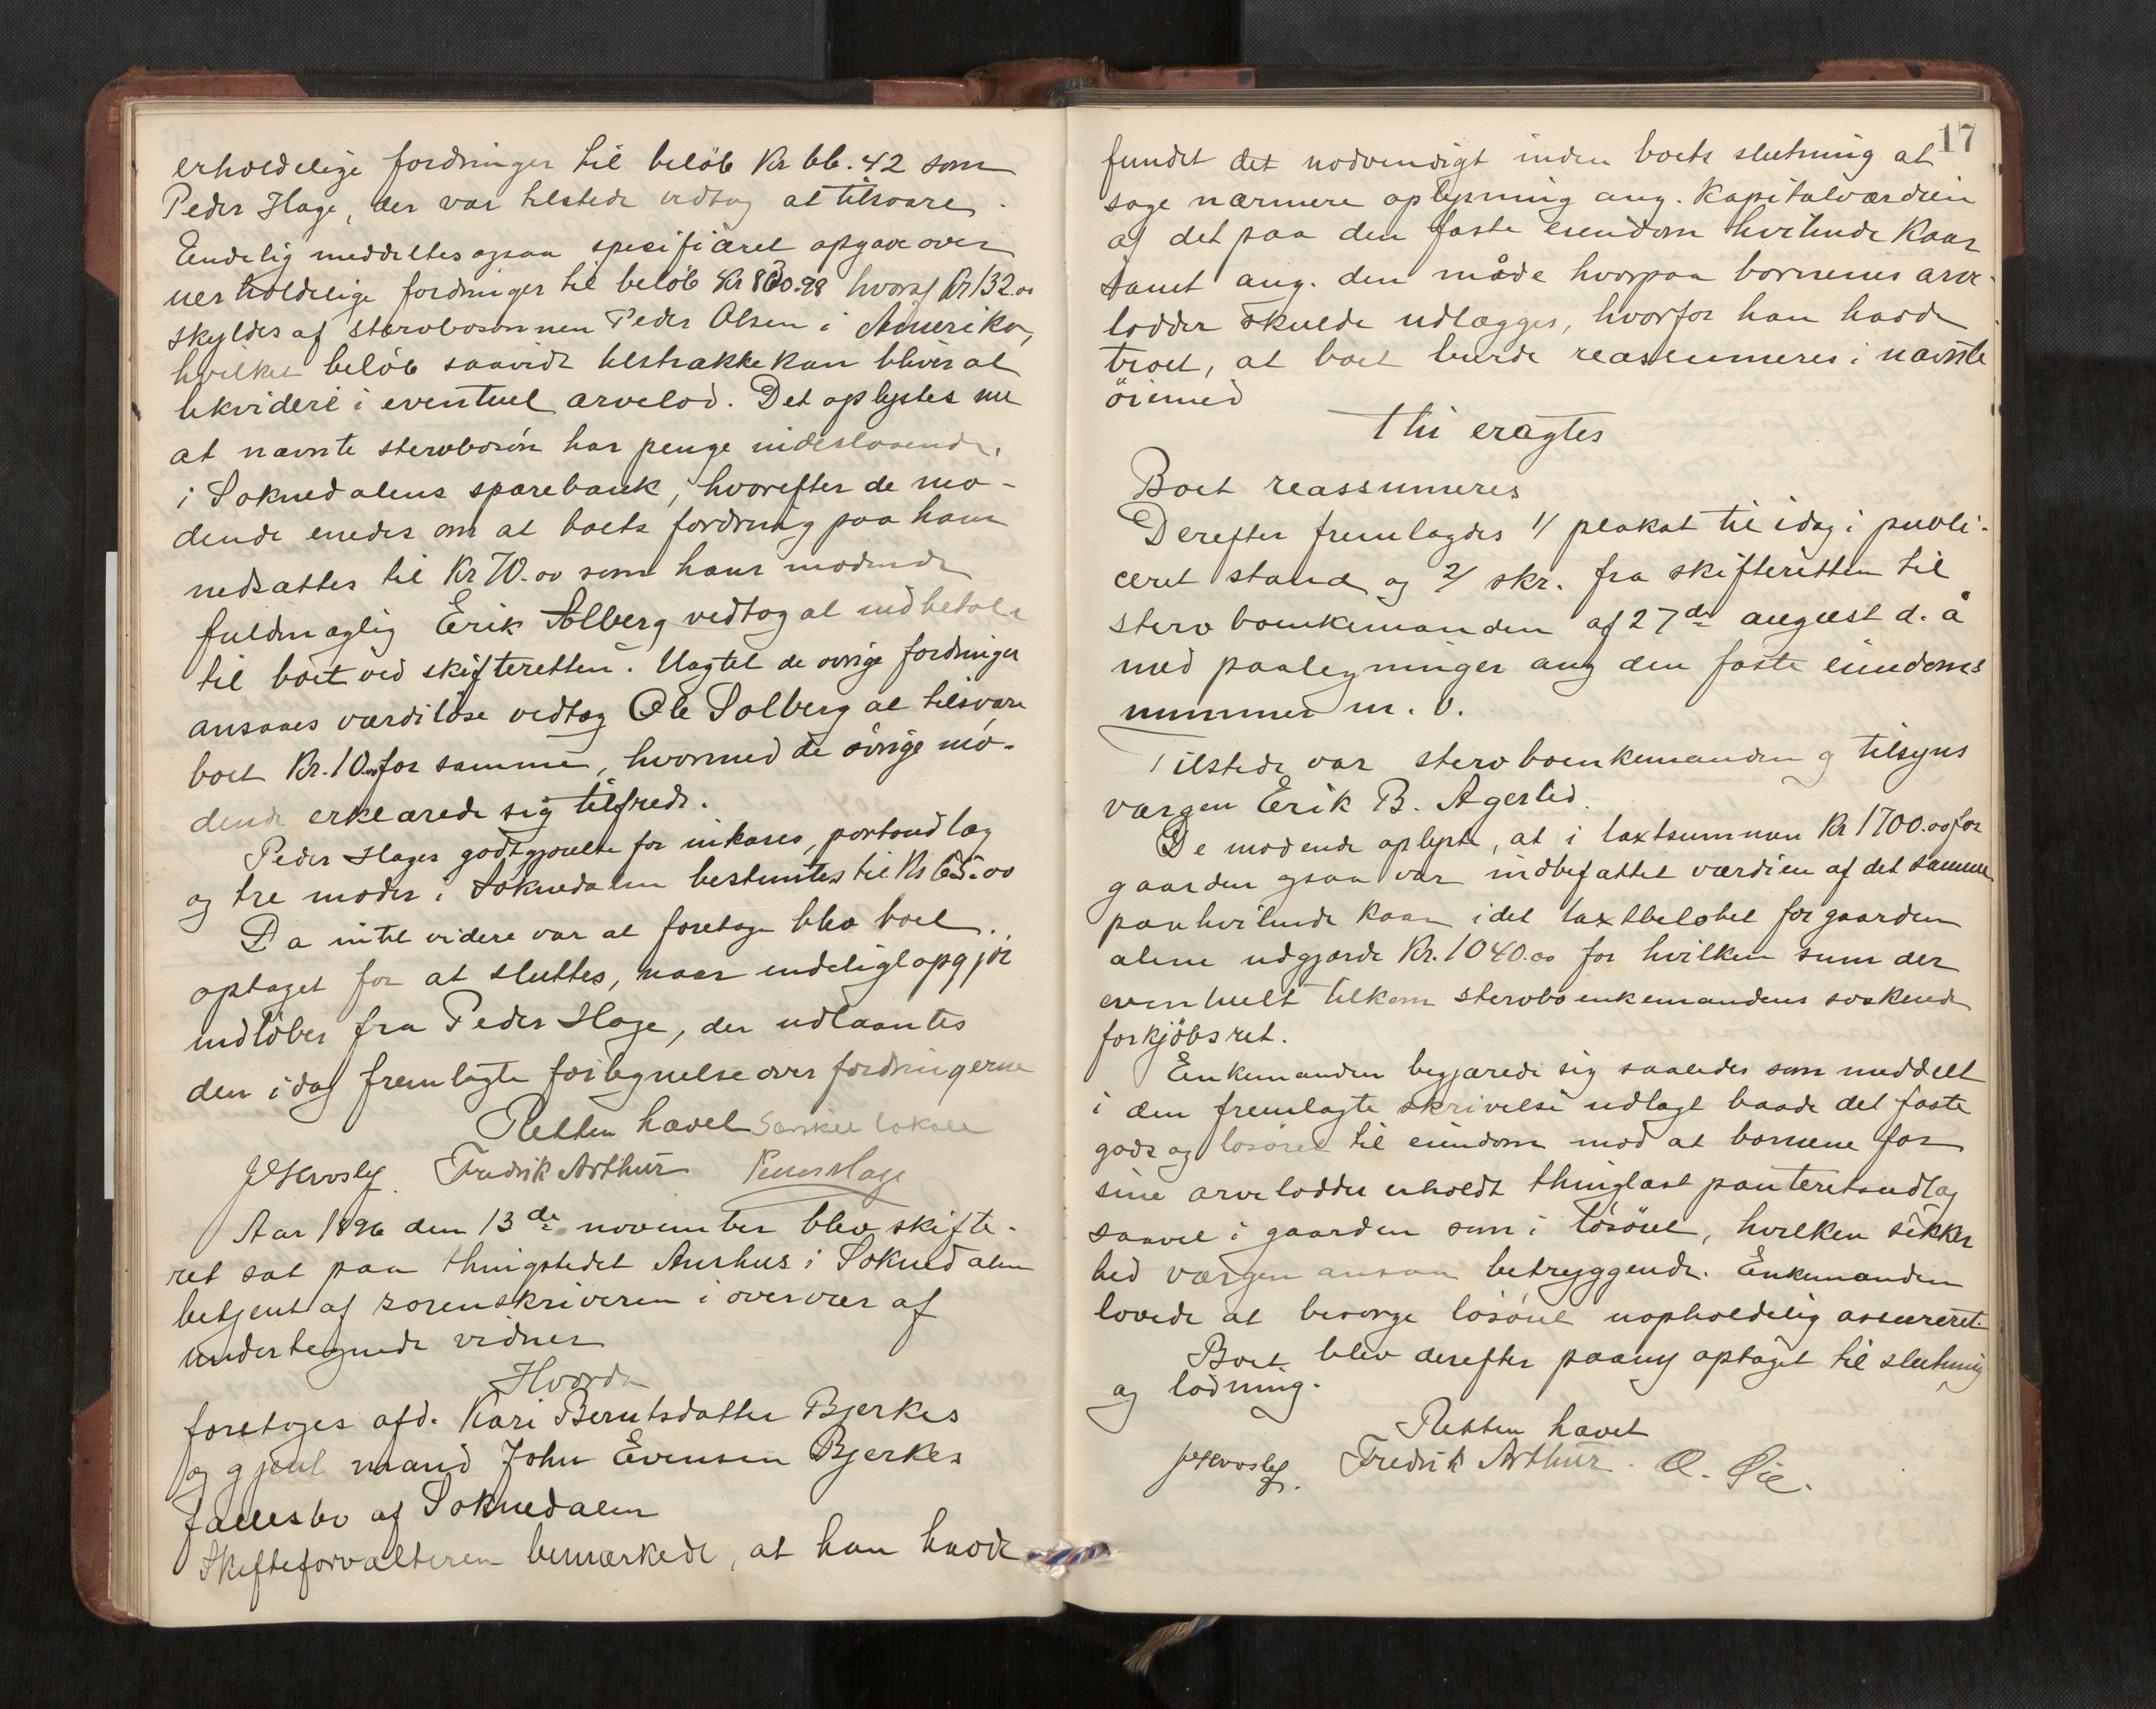 erholdelige fordringer til beløb Kr 66.42 som
Peder Hage, der var tilstede vedtog at tilsvare.
Endelig meddeltes ogsaa specificeret opgave over
uerholdelige fordringer til beløb Kr 860.98 hvoraf Kr 132.00
skyldes af stervbosønnen Peder Olsen i Amerika,
hvilket beløb saavidt tilstrække kan bliver at
likvidere i eventuel arvelod. Det oplystes nu
at nævnte stervbosøn har penge indestaaende
i Soknedalens sparebank, hvorefter de mø-
dende enedes om at boets fordring paa ham
nedsattes til Kr 70.00 som hans mødende
fuldmægtig Erik Solberg vedtog at indbetale
til boet ved skifteretten. Uagtet de øvrige fordringer
ansaaes værdiløse vedtog Ole Solberg at tilsvare
boet Kr. 10.00 for samme, hvormed de øvrige mø-
dende erklærede sig tilfreds.
Peder Hages godtgjørelse for inkasso, portoudlæg
og tre møder i Soknedalen bestemtes til Kr 65.00
Da intet videre var at foretage blev boet
optaget for at sluttes, naar endeligt opgjør
indløber fra Peder Hage, der udlaantes
den idag fremlagte fortegnelse over fordringerne
Retten hævet Særskilt lokale
Fredrik Arthur Peder Hage
Aar 1896 den 13de november blev skifte-
ret sat paa thingstedet Aashus i Soknedalen
betjent af sorenskriveren i overvær af
undertegnede vidner
Hvorda
foretoges afd. Kari Berntsdatter Bjerkes
og gjenl mand John Evensen Bjerkes
fællesbo af Soknedalen
Skifteforvalteren bemærkede, at han havde
17
fundet det nødvendigt inden boets slutning at
søge nærmere oplysning ang. kapitalværdien
af det paa den faste eiendom hvilende kaar
samt ang. den måde hvorpaa børnenes arve-
lodder skulde udlægges, hvorfor han havde
troet, at boet burde reassumeres i nævnte
øiemed
Thi eragtes
Boet reassumeres
Derefter fremlagdes 1/ plakat til idag i publi-
ceret stand og 2/ skr. fra skifteretten til
stervboenkemanden af 27de august d. å
med paategninger ang den faste eiendoms
nummer m. v.
Tilstede var stervboenkemanden og tilsyns
værgen Erik B. Agersted.
De mødende oplyste, at i taxtsummen Kr 1700.00 for
gaarden ogsaa var indbefattet værdien af det samme
paahvilende kaar idet taxtbeløbet for gaarden
alene udgjorde Kr. 1040.00 for hvilken sum der
eventuelt tilkom stervboenkemandens søskende
forkjøbsret.
Enkemanden begjærede sig saaledes som meddelt
i den fremlagte skrivelse udlagt baade det faste
gods og løsøret til eiendom mod at børnene for
sine arvelodder erholdt thinglæst panteretsudlæg
saavel i gaarden som i løsøret, hvilken sikker
hed værgen ansaa betryggende. Enkemanden
lovede at besørge løsøret uopholdelig assureret.
Boet blev derefter paany optaget til slutning
og lodning.
Retten hævet
Fredrik Arthur. O. Øie.